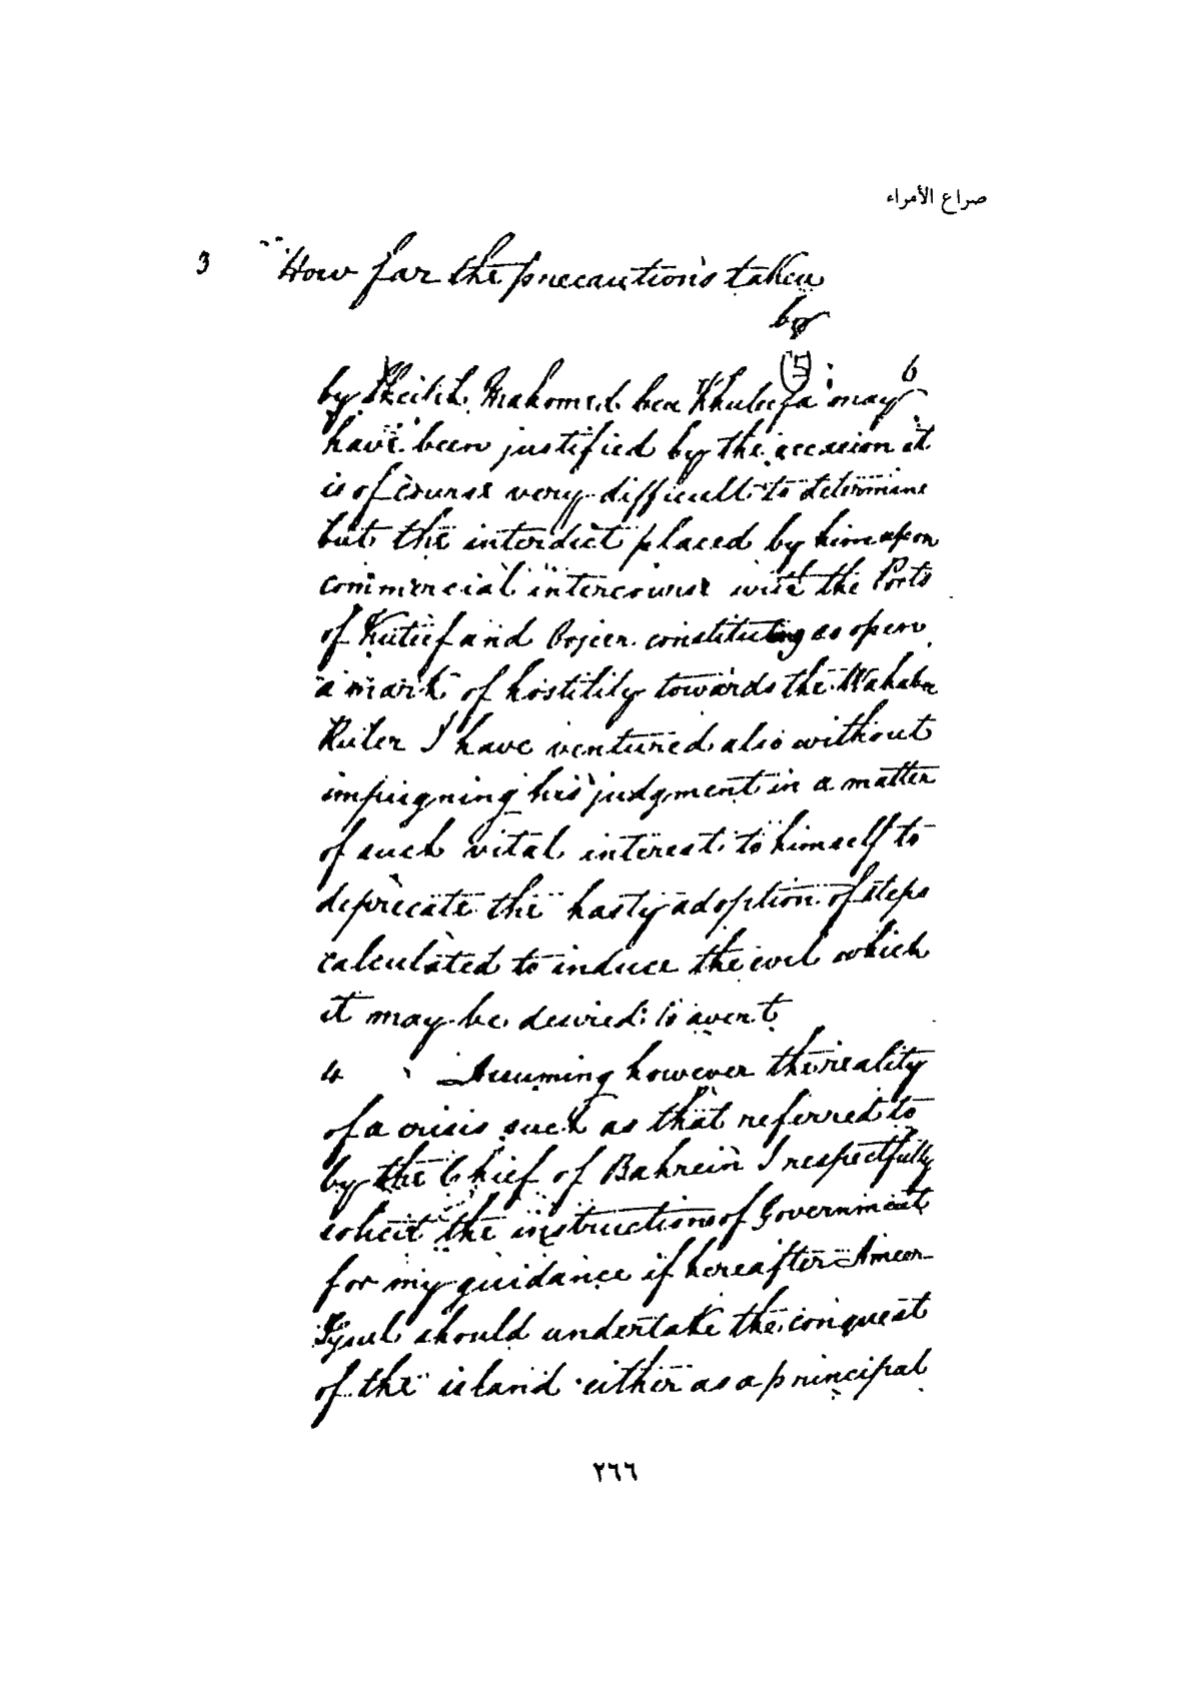 صراع الأمراء
3 How far the precautions taken
by
(5) 6
by Sheikh Mahomed ben Khuleefa may
have been justified by the occasion it
is of course very difficult to determine
but the interdict placed by him upon
commercial intercourse with the Ports
of Kuteef and Ojeer constituting as open
a mark of hostility towards the Wahabee
Ruler I have ventured also without
impugning his judgment in a matter
of such vital interest to himself to
deprecate the hasty adoption of steps
calculated to induce the evil which
it may be desired to avert
4 Assuming however the reality
of a crisis such as that referred to
by the Chief of Bahrein I respectfully
solicit the instructions of Government
for my guidance if hereafter Ameer
Fysul should undertake the conquest
of the island either as a principal
٢٦٦